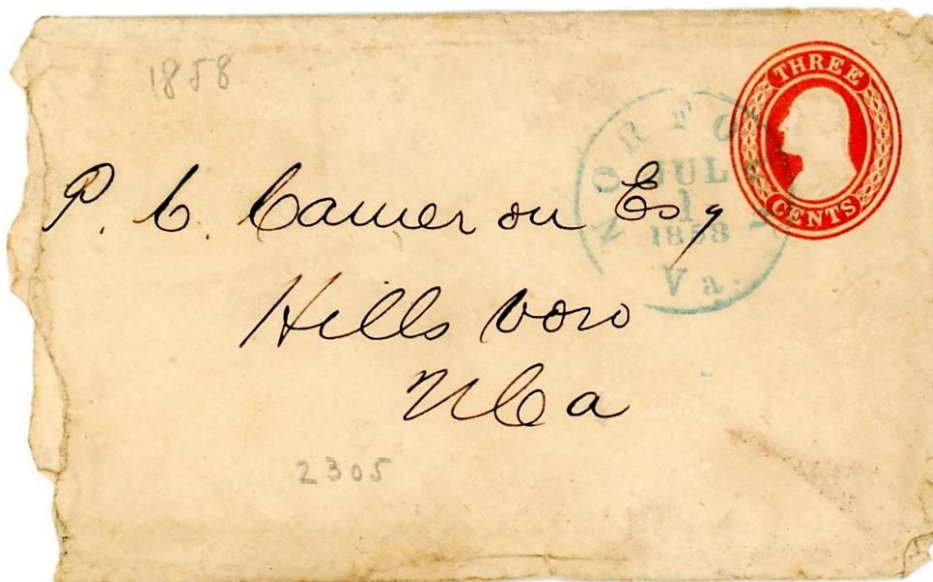 1858
THREE
CENTS
NORFOLK
JUL
1
1858
Va.
P. C. Cameron Esq
Hillsboro
N Ca
2305